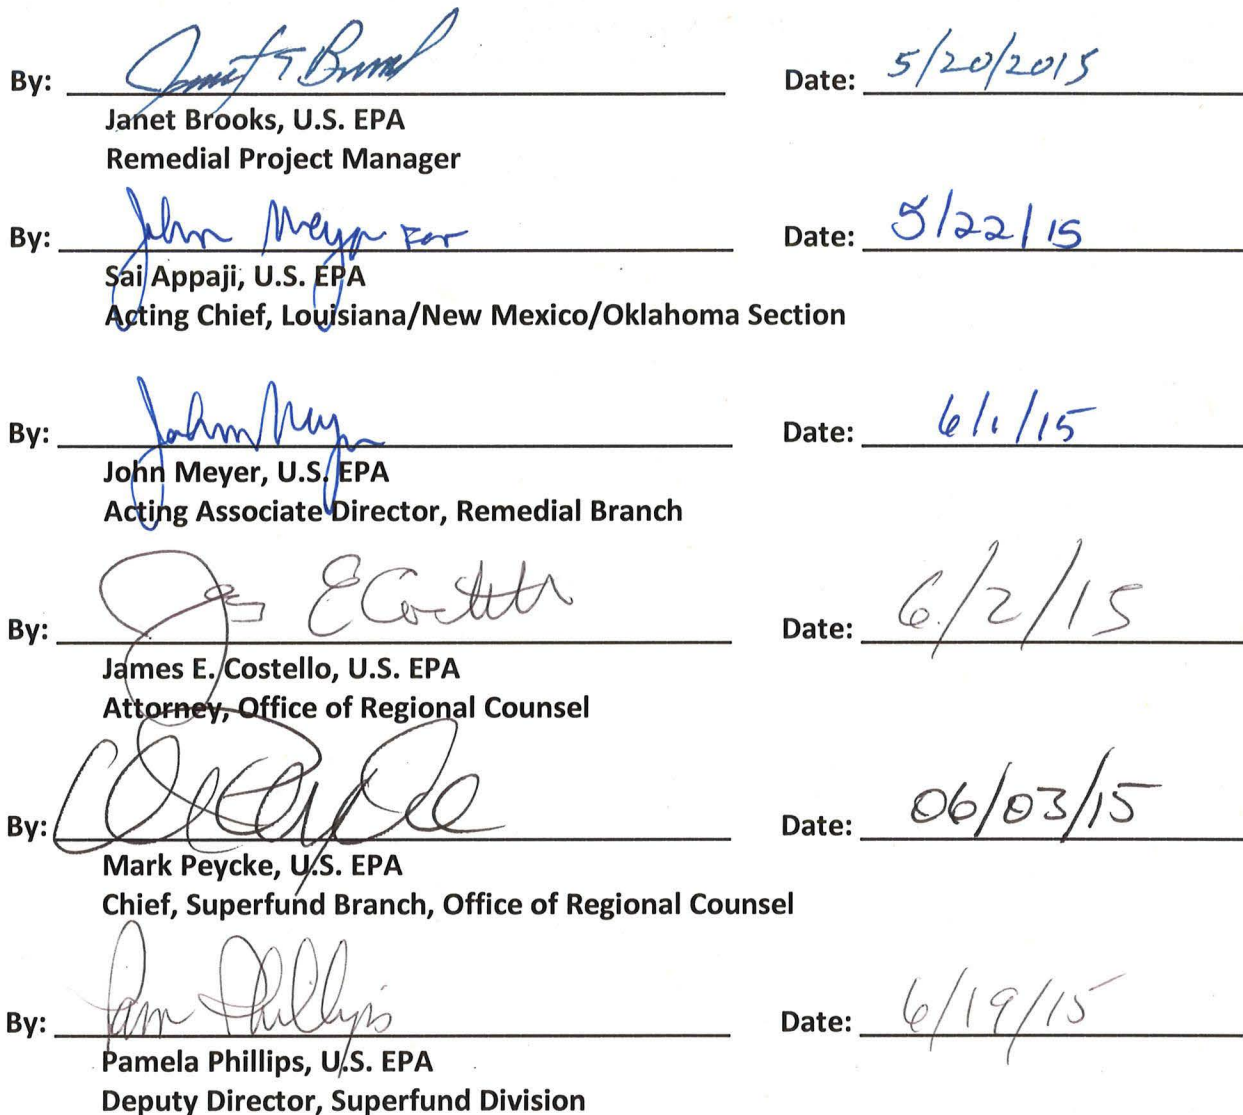 By: Janet Brooks Date: 5/20/2015
Janet Brooks, U.S. EPA
Remedial Project Manager
By: John Meyer For Date: 5/22/15
Sai Appaji, U.S. EPA
Acting Chief, Louisiana/New Mexico/Oklahoma Section
By: John Meyer Date: 6/1/15
John Meyer, U.S. EPA
Acting Associate Director, Remedial Branch
By: James E Costello Date: 6/2/15
James E. Costello, U.S. EPA
Attorney, Office of Regional Counsel
By: Date: 06/03/15
Mark Peycke, U.S. EPA
Chief, Superfund Branch, Office of Regional Counsel
By: Pam Phillips Date: 6/19/15
Pamela Phillips, U.S. EPA
Deputy Director, Superfund Division